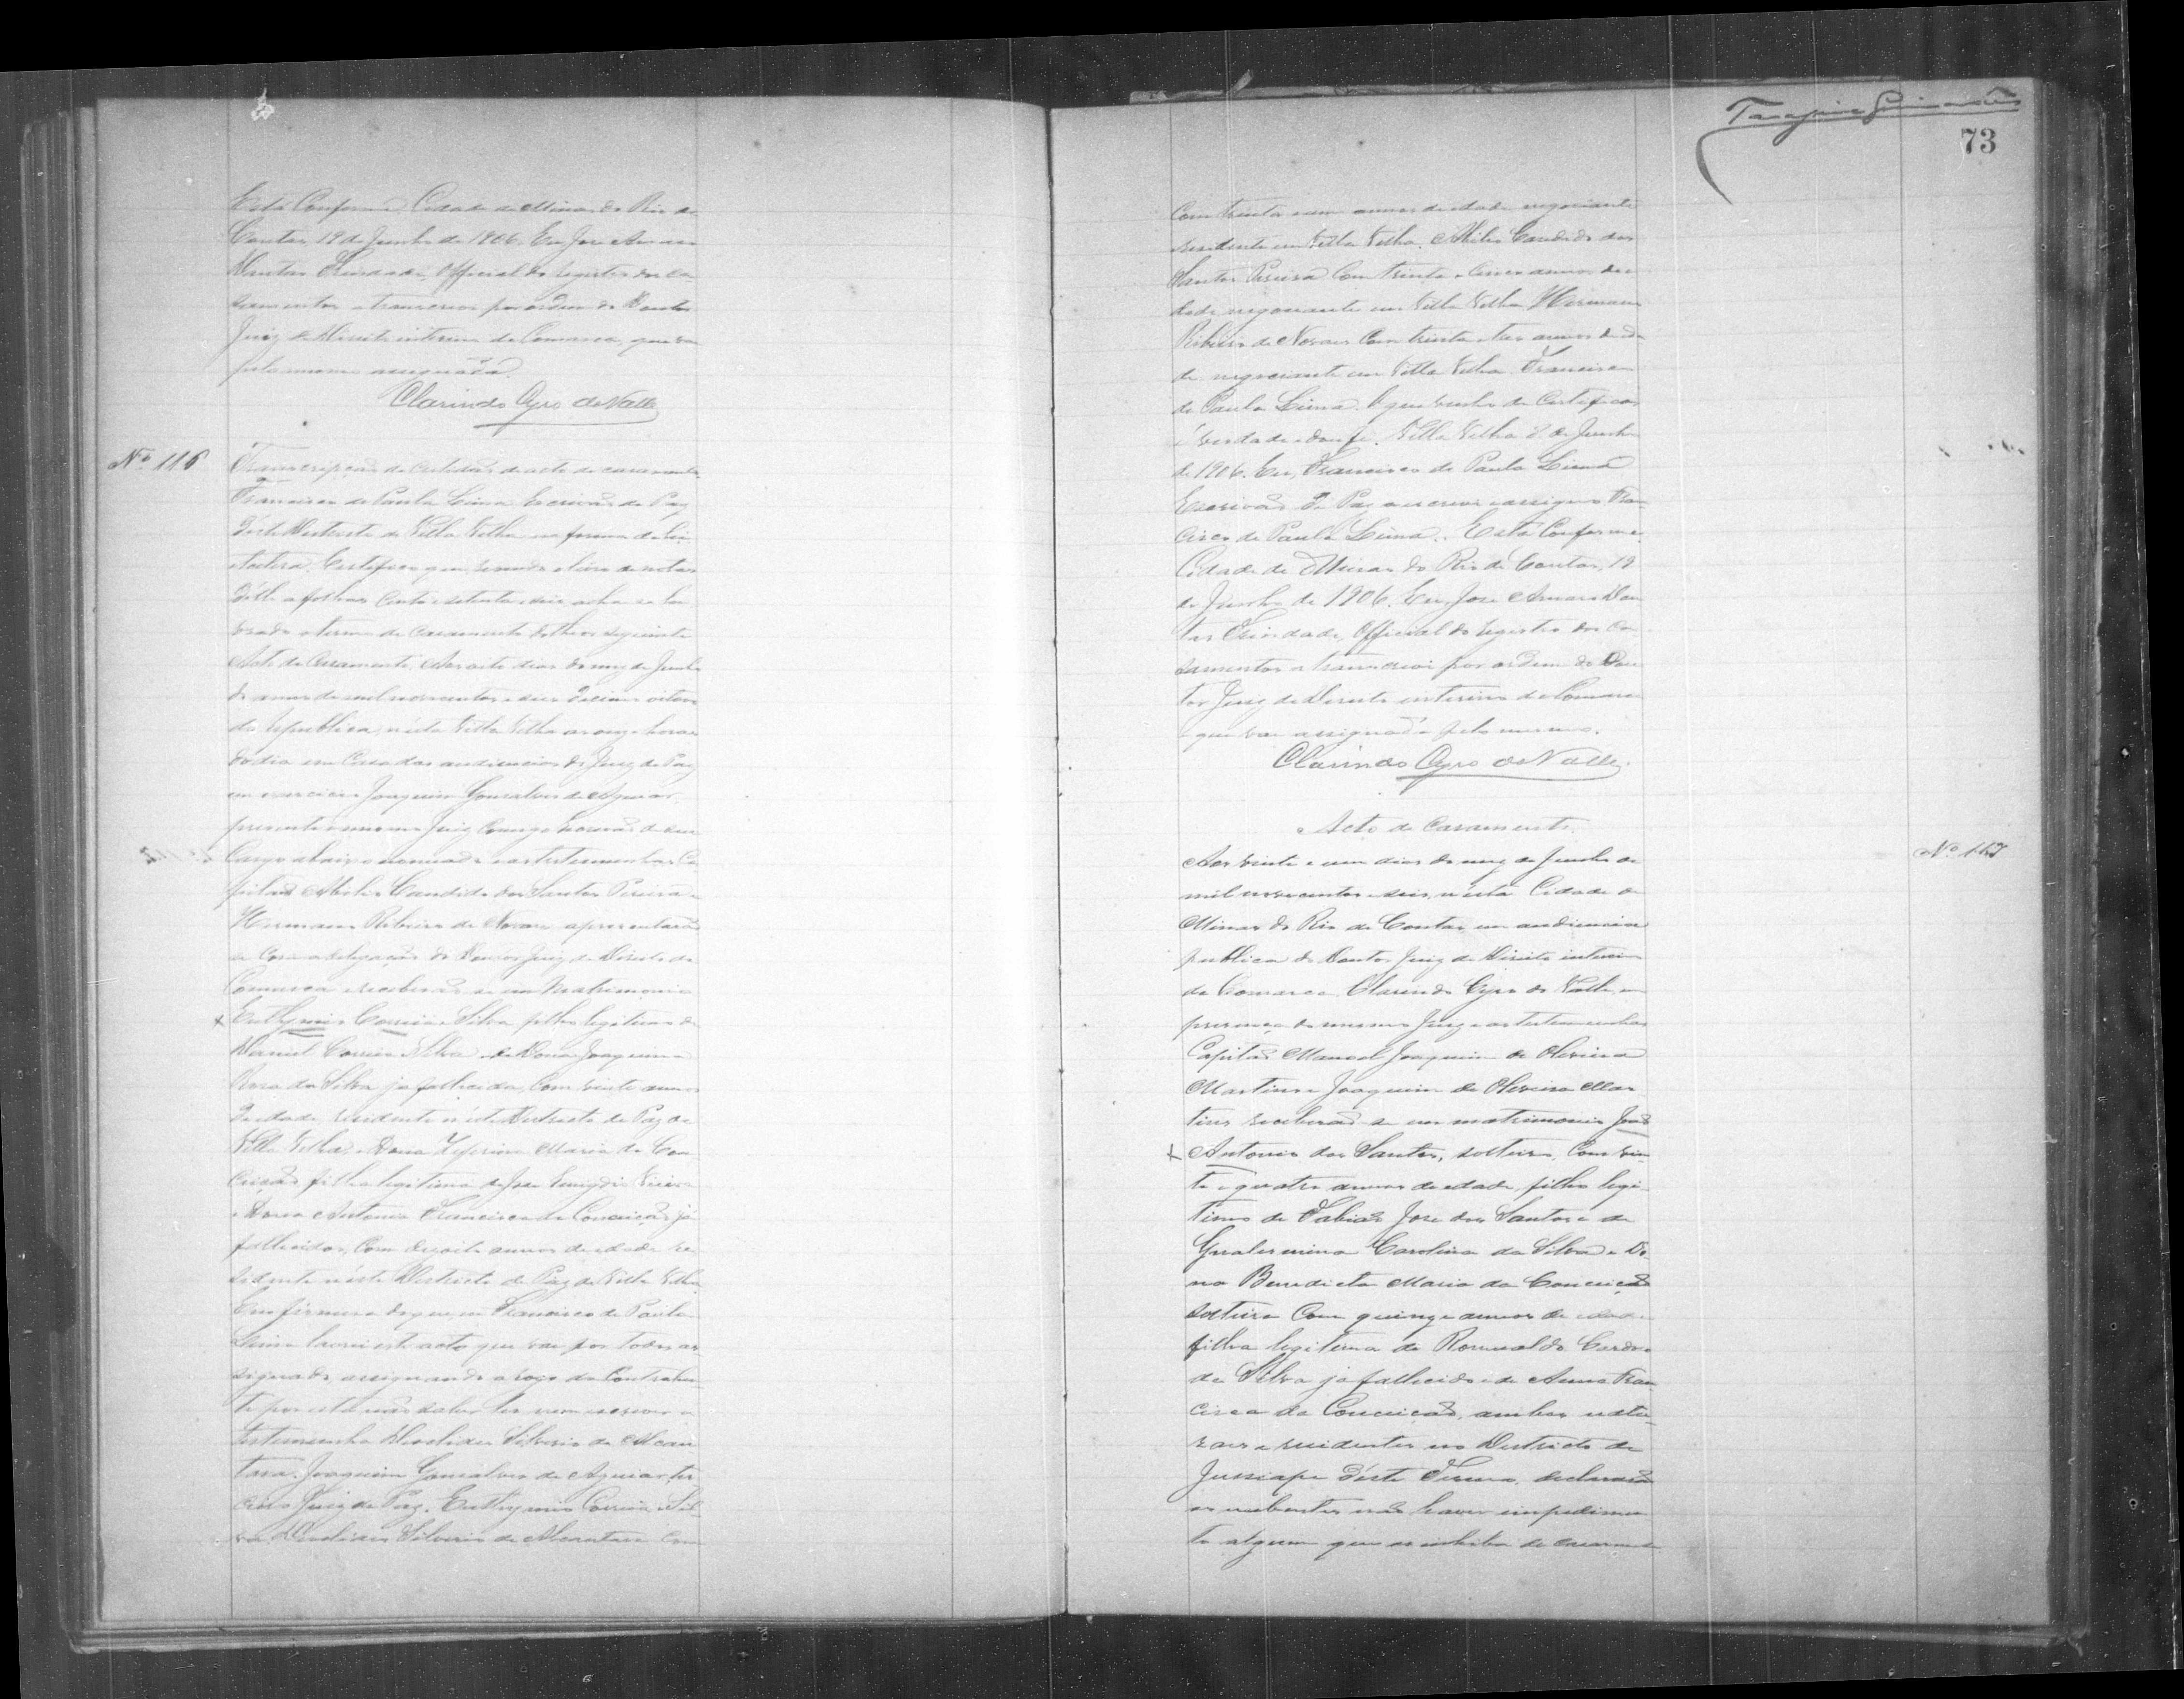 Está Conforme. Cidade de Minas do Rio de
Contas 19 de Junho de 1906. Eu José Amaro
Dantas Trindade, Official do registro dos ca-
samentos a transcrevi por ordem do Doutor
Juiz de Direito interino da Comarca, que vae
pelo mesmo assignada.
Clarindo Cyro do Valle
Nº 116
Transcripção da Certidão de acto de casamento
Francisco de Paula Lima Escrivão de Paz
deste Districto de Villa Velha na forma da lei
etcetera. Certifico que revendo o livro de notas
d'elle a folhas cento e setenta e seis acha-se la-
vrado o termo de casamento do theor seguinte
Acto de Casamento. Aos oito dias do mez de Junho
do anno de mil novecentos e seis decimo oitavo
da republica, n'esta Villa Velha as onze horas
do dia em Casa das audiencias do Juiz de Paz
em exercicio Joaquim Gonsalves de Aguiar
presente o mesmo Juiz Comigo Escrivão de seu
Cargo abaixo nomeado e as testemunhas Ca-
pitão Abilio Candido dos Santos Pereira e
Hermano Ribeiro de Novaes
do Doutor Juiz de Direito da
Comarca receberão-se em Matrimonio
x Euthymio Correia e Silva filho legitimo de
Daniel Correia e Silva e de Dona Joaquina
Rosa da Silva ja fallecida, Com vinte annos
de edade residente n'este Districto de Paz de
Villa Velha e Dona Zeferina Maria da Con-
ceição filha legitima de José Emygdio Vieira
e Dona Antonia Francisca da Conceição ja
fallecidos, Com dezoito annos de edade re-
sidente n'este Districto de Paz de Villa Velha
Em firmeza do que, eu Francisco de Paula
Lima lavrei este acto que vae por todos as-
signado, assignando a rogo da Contrahen-
te por esta não saber ler nem escrever a
testemunha Silverio de Alcan-
tara. Joaquim Gonsalves de Aguiar ter-
ceiro Juiz de Paz. Euthymio Correia e Sil-
va, Silverio de Alcantara Com
73
Com trinta e um annos de edade negociante
residente em Villa Velha. Abilio Candido dos
Santos Pereira Com trinta e Cinco annos de e-
dade negociante em Villa Velha Hermano
Ribeiro de Novaes Com trinta e tres annos de eda-
de negociante em Villa Velha. Francisco
de Paula Lima. O que venho de Certificar
é verdade e dou fé. Villa Velha 8 de Junho
de 1906. Eu, Francisco de Paula Lima
Escrivão de Paz o escrevi e assigno Fran-
cisco de Paula Lima. Está Conforme.
Cidade de Minas do Rio de Contas, 19
de Junho de 1906. Eu José Amaro Dan-
tas Trindade, Official do registro dos Ca-
samentos a transcrevi por ordem do Dou-
tor Juiz de Direito interino da Comarca
que vae assignada pelo mesmo.
Clarindo Cyro do Valle
Acto de Casamento.
Nº 117
Aos vinte e um dias do mez de Junho de
mil novecentos e seis, n'esta Cidade de
Minas do Rio de Contas em audiencia
publica do Doutor Juiz de Direito interino
da Comarca, Clarindo Cyro do Valle, em
presença do mesmo Juiz e as testemunhas
Capitão Manoel Joaquim de Oliveira
Martins e Joaquim de Oliveira Mar-
tins receberão-se em matrimonio João
x Antonio dos Santos, solteiro, Com vin-
te e quatro annos de edade, filho legi-
timo de Tobias José dos Santos e de
Gualermina Carolina da Silva e Do-
na Benedicta Maria da Conceição
solteira Com quinze annos de edade
filha legitima de Romualdo Cardozo
da Silva ja fallecido e de Anna Fran-
cisca da Conceição, ambos natu-
raes e residentes no Districto de
Jussiape d'este Termo, declararão
os nubentes não haver impedimen-
to algum que os inhiba de casarem-se